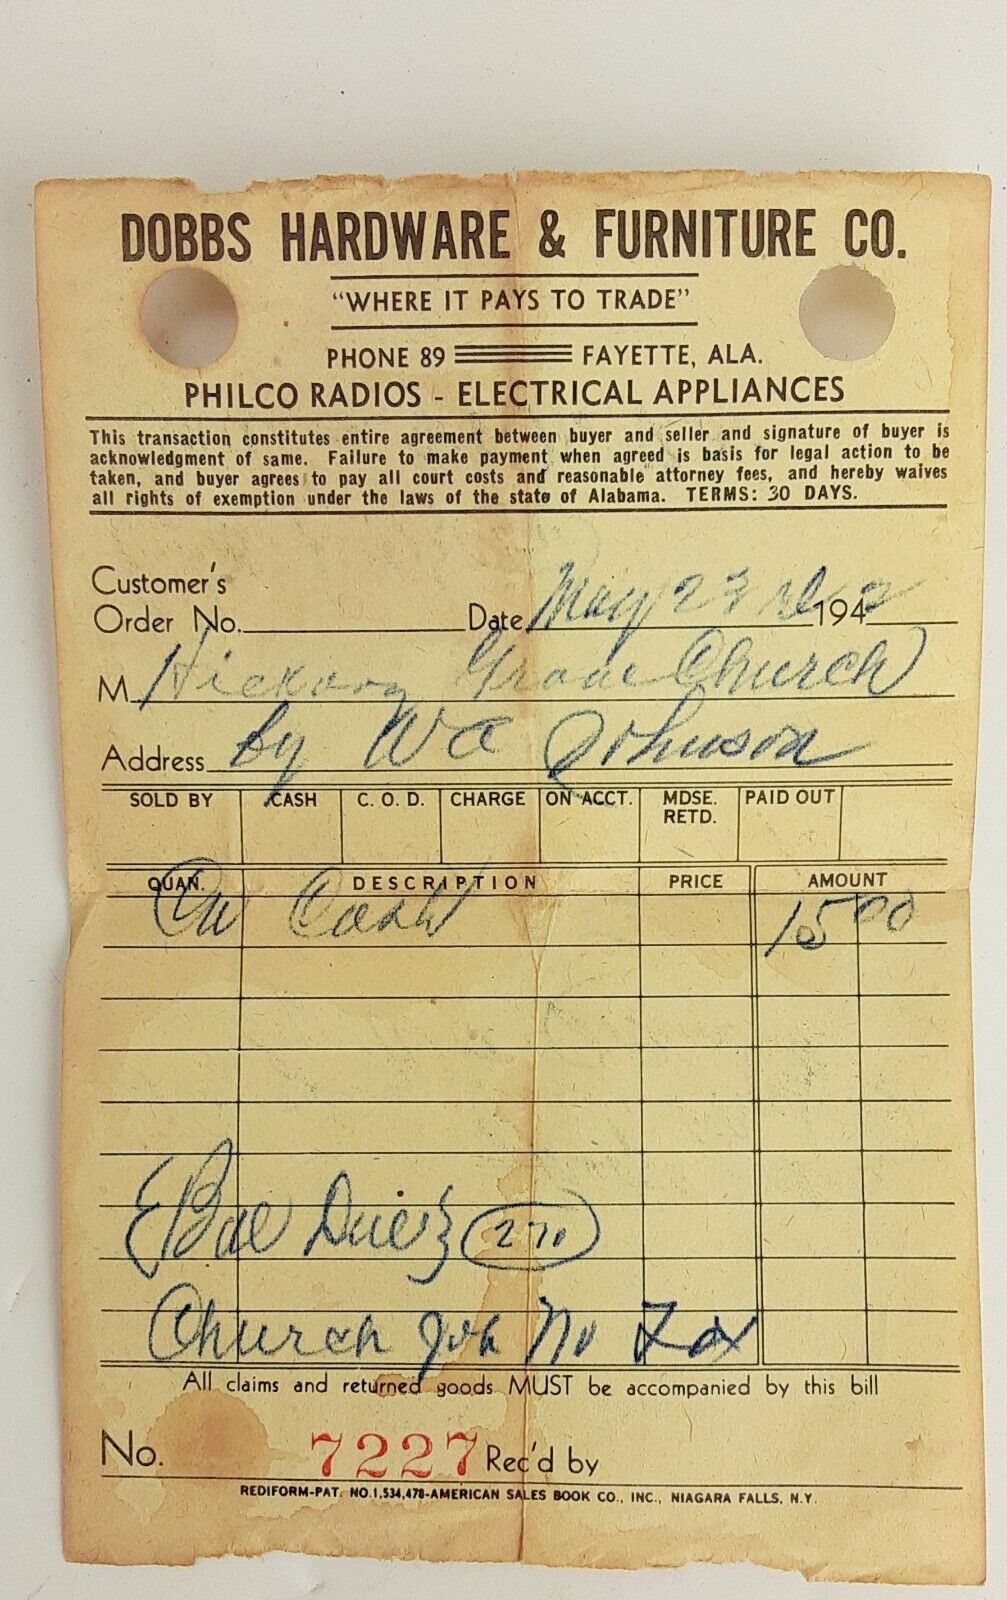 DOBBS HARDWARE & FURNITURE CO.
"WHERE IT PAYS TO TRADE"
PHONE 89 FAYETTE, ALA.
PHILCO RADIOS - ELECTRICAL APPLIANCES
This transaction constitutes entire agreement between buyer and seller and signature of buyer is
acknowledgment of same. Failure to make payment when agreed is basis for legal action to be
taken, and buyer agrees to pay all court costs and reasonable attorney fees, and hereby waives
all rights of exemption under the laws of the state of Alabama. TERMS: 30 DAYS.
Customer's
Order No. Date May 23 rd 1942
M Hickory Grove Church
Address by W A Johnson
SOLD BY CASH C. O. D. CHARGE ON ACCT. MDSE. RETD. PAID OUT
QUAN. DESCRIPTION PRICE AMOUNT
On Cash 15 00
Bal Due 270
Church Job No Tax
All claims and returned goods MUST be accompanied by this bill
No. 7227 Rec'd by
REDIFORM-PAT. NO.1,534,478-AMERICAN SALES BOOK CO., INC., NIAGARA FALLS, N.Y.